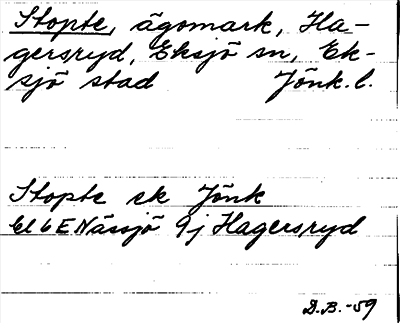 Stopte, ägomark, Ha-
gersryd, Eksjö sn, Ek-
sjö stad Jönk.l.
Stopte ek Jönk
El 6 E Nässjö 9j Hagersryd
D.B.-59